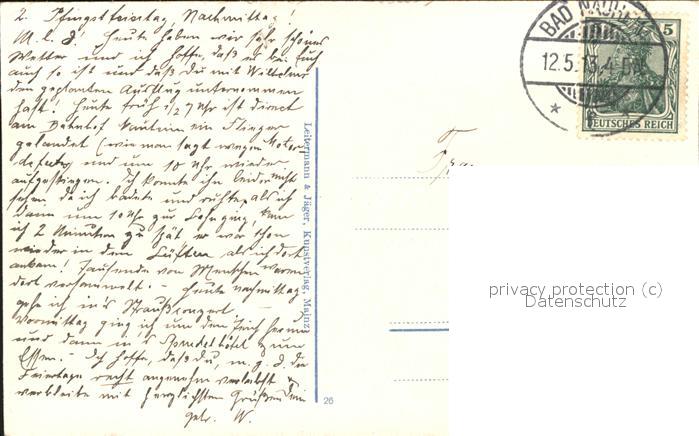 2. Pfingstfeiertag, Nachmittag!
M. l. J! Heute haben wir sehr schönes
Wetter und ich hoffe, daß es bei Euch
auch so ist und daß du mit
den geplanten Ausflug unternommen
hast! Heute früh 1/2 7 Uhr ist direct
am Bahnhof ein Flieger
gelandet (wie man sagt wegen Motor
defectes) und um 10 Uhr wieder
aufgestiegen. Ich konnte ihn leider nicht
sehen da ich badete und ruhte, als ich
dann um 10 Uhr zur ging, kam
ich 2 Minuten zu spät er war schon
wieder in den Lüften als ich dort
ankam! Tausende von Menschen waren
dort versammelt. - Heute nachmittag
gehe ich in's Straußconzert.
Vormittag ging ich um den Teich herum
und dann in's Sprudelhôtel zum
Essen. - Ich hoffe, daß du, m. g. J. die
Feiertage recht angenehm verlebst u.
verbleibe mit herzlichsten Grüßen dein
getr. W.
Leitermann & Jäger, Kunstverlag, Mainz.
26
BAD NAUHEIM
12.5.13.4-5N.
5
DEUTSCHES REICH
privacy protection (c)
Datenschutz